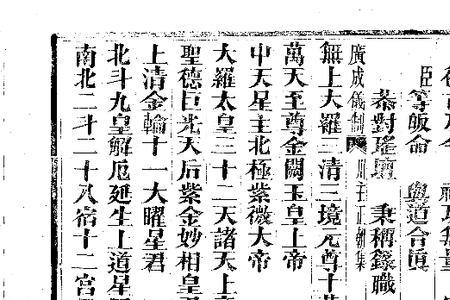 臣等皈命 與道合真
恭對瑤壇 秉稱籙職
廣成儀制 正朝集
無上大羅三清三境元尊十
萬天至尊金闕玉皇上帝
中天星主北極紫微大帝
大羅太皇三十二天諸天上
聖德巨光天后紫金妙相皇
上清金輪十一大曜星君
北斗九皇解厄延生上道星
南北二斗二十八宿十二宮